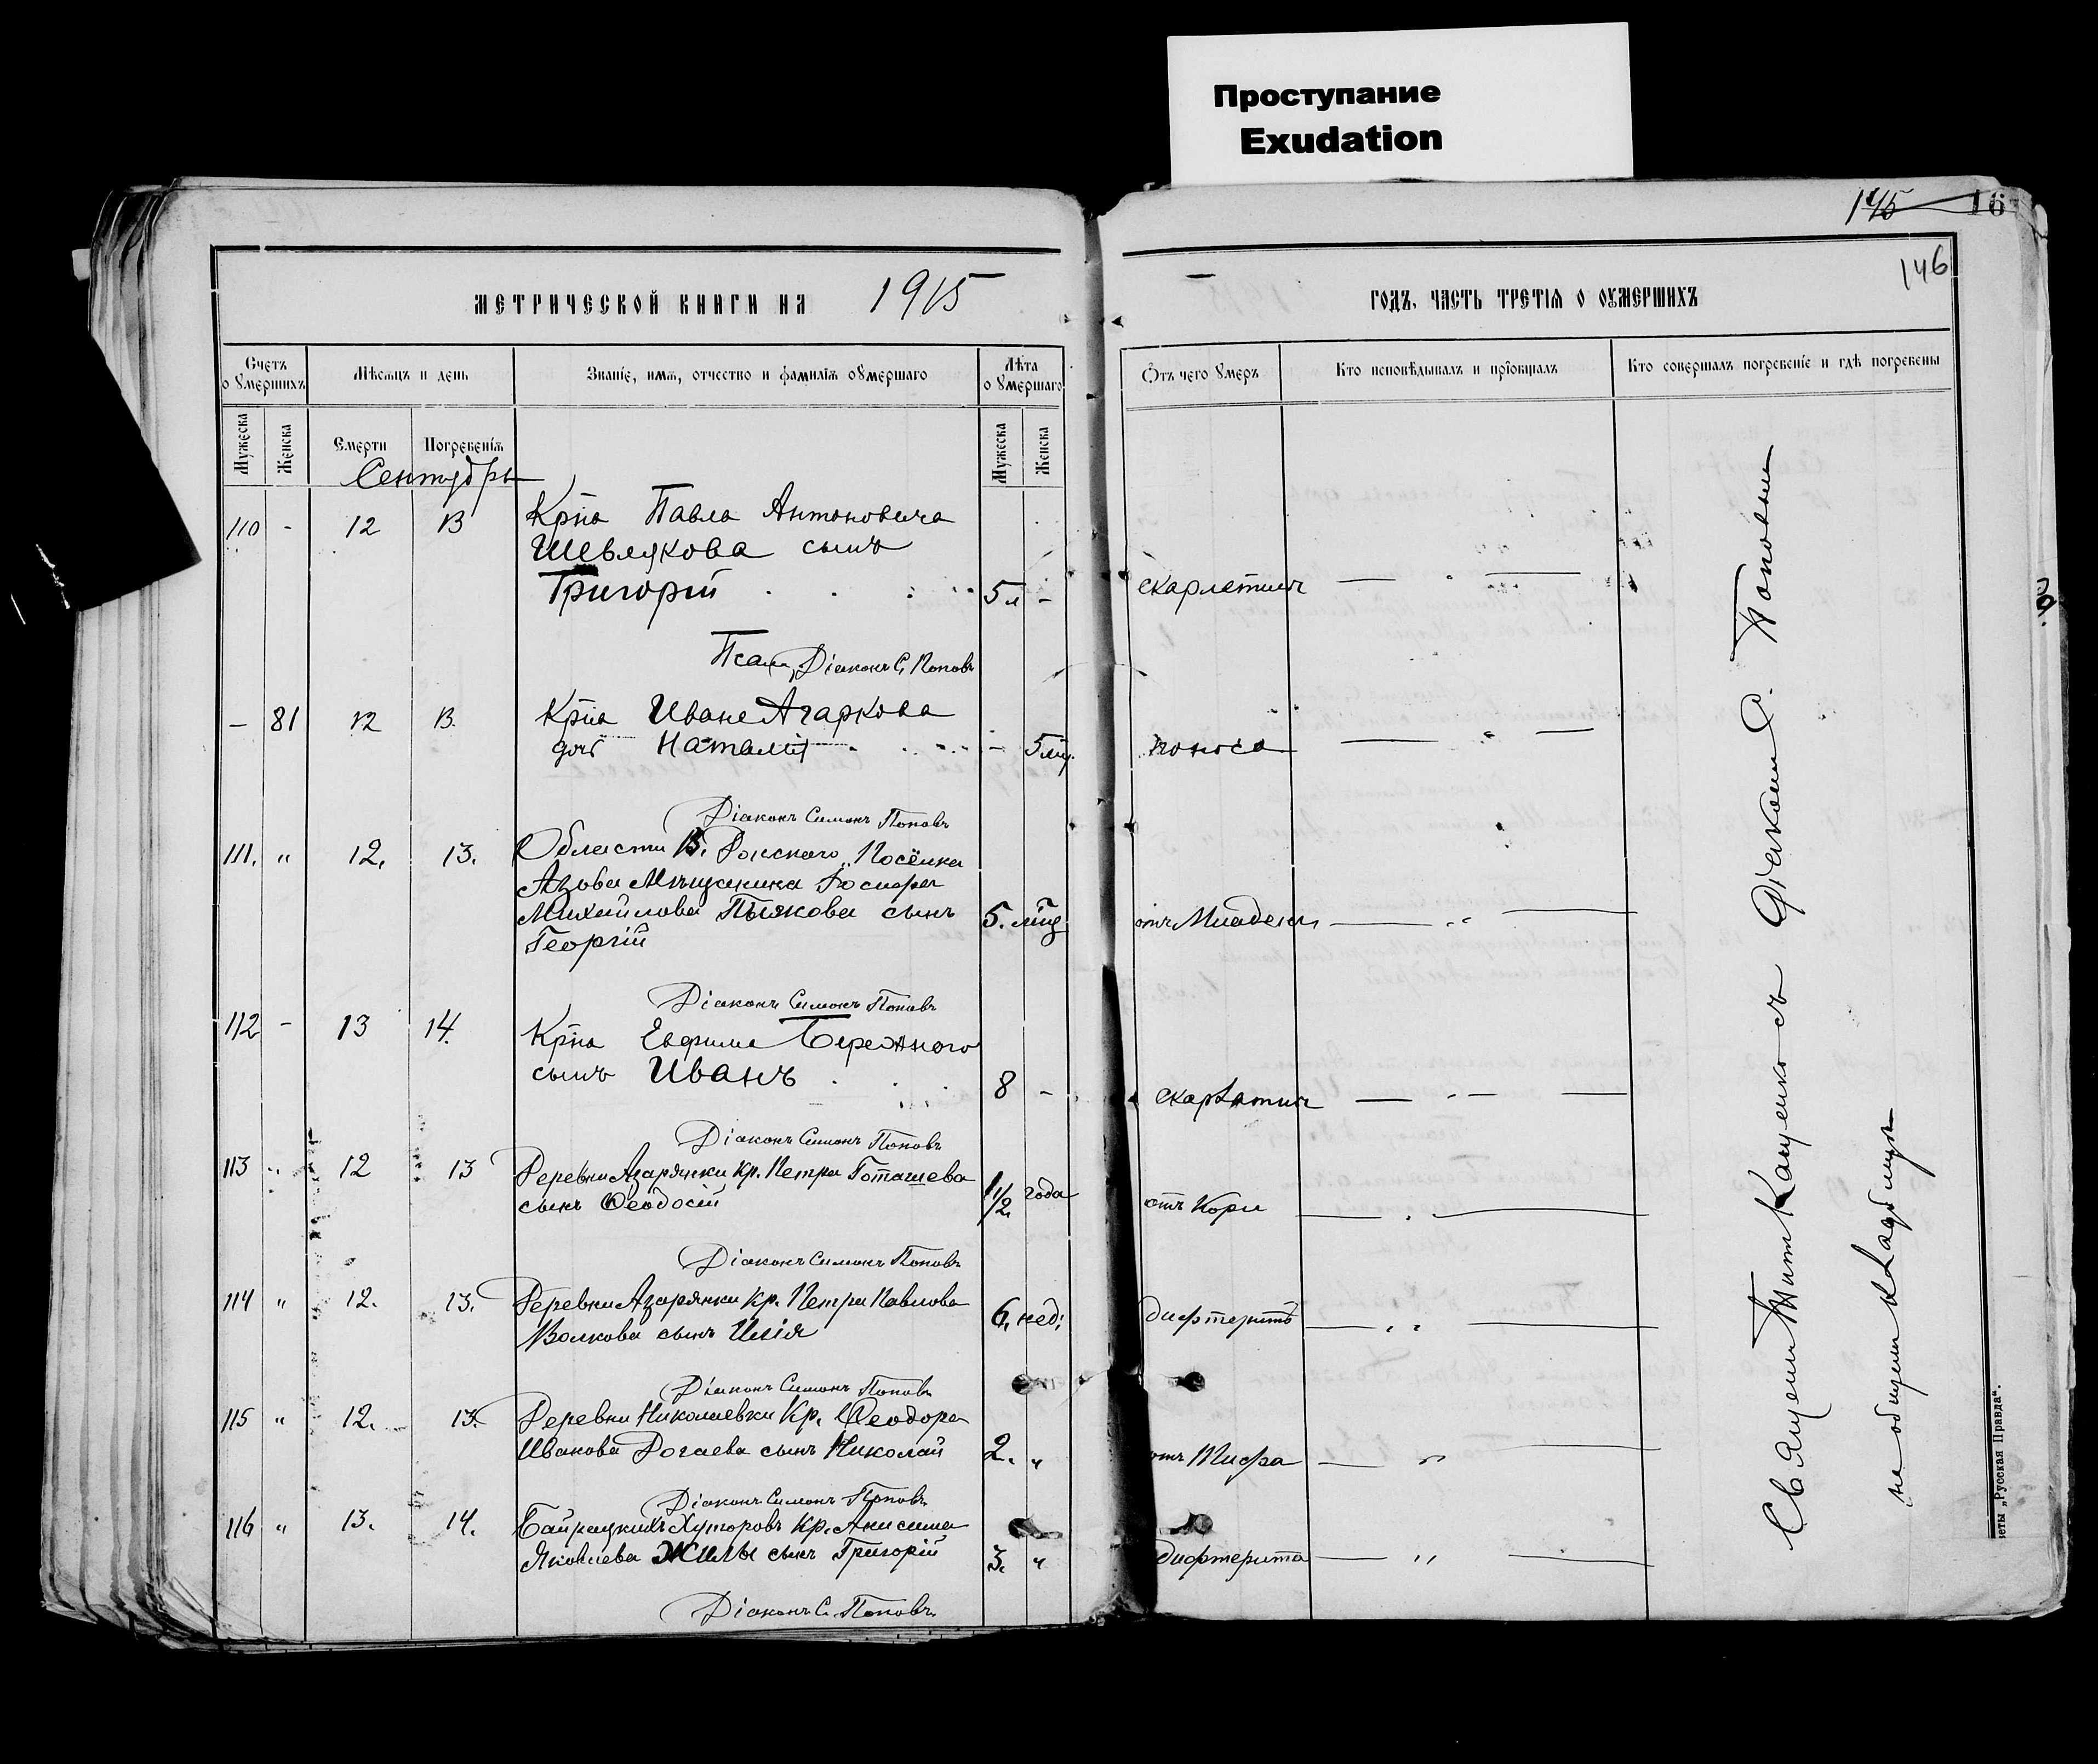 Проступание
Exudation
145 16
146
МЕТРИЧЕСКОЙ КНИГИ НА 1915
ГОДЪ, ЧАСТЬ ТРЕТІЯ О ОУМЕРШИХЪ
Счетъ о умершихъ
Мѣсяцъ и день
Званіе, имя, отчество и фамилія оумершаго
Лѣта о умершаго
Отъ чего умеръ
Кто исповѣдывалъ и пріобщалъ
Кто совершалъ погребеніе и гдѣ погребены
Мужеска
Женска
Смерти
Погребенія
Мужеска
Женска
Сентябрь
110 - 12 13 Крⷭ҇на Павла Антоновича
Шевлякова сынъ
Григорій 5 л - скарлатин
Псал. Діаконъ С. Поповъ
- 81 12 13. Крⷭ҇на Ивана Агаркова
дочь Наталія - 5 мц. поноса
Діаконъ Симонъ Поповъ
111. " 12. 13. Области В. Донского, Посёлка
Азова Мѣщанина
Михайлова Пьякова сынъ 5. мцъ отъ Младенч.
Георгій
Діаконъ Симонъ Поповъ
112 - 13 14. Крⷭ҇на Евфима Бережного
сынъ Иванъ 8 - скарлатин
Діаконъ Симонъ Поповъ
113 " 12 13 Деревни Азарянки Кр. Петра Готашева
сынъ Ѳеодосій 1 1/2 года отъ Кори
Діаконъ Симонъ Поповъ
114 " 12. 13. Деревни Азарянки Кр. Петра Павлова
Волкова сынъ Илія 6. нед: дифтеритъ
Діаконъ Симонъ Поповъ
115 " 12. 13. Деревни Николаевки Кр. Ѳеодора
Иванова Рогаева сынъ Николай 2. " отъ Тифа
Діаконъ Симонъ Поповъ
116 " 13. 14. Байрацкихъ Хуторовъ Кр. Анисима
Яковлева Жилы сынъ Григорій 3. " дифтерита
Діаконъ С. Поповъ.
Священ. Тит Кащенко съ Діаконом С. Поповым
на общем кладбищѣ
зеты „Русская Правда“.